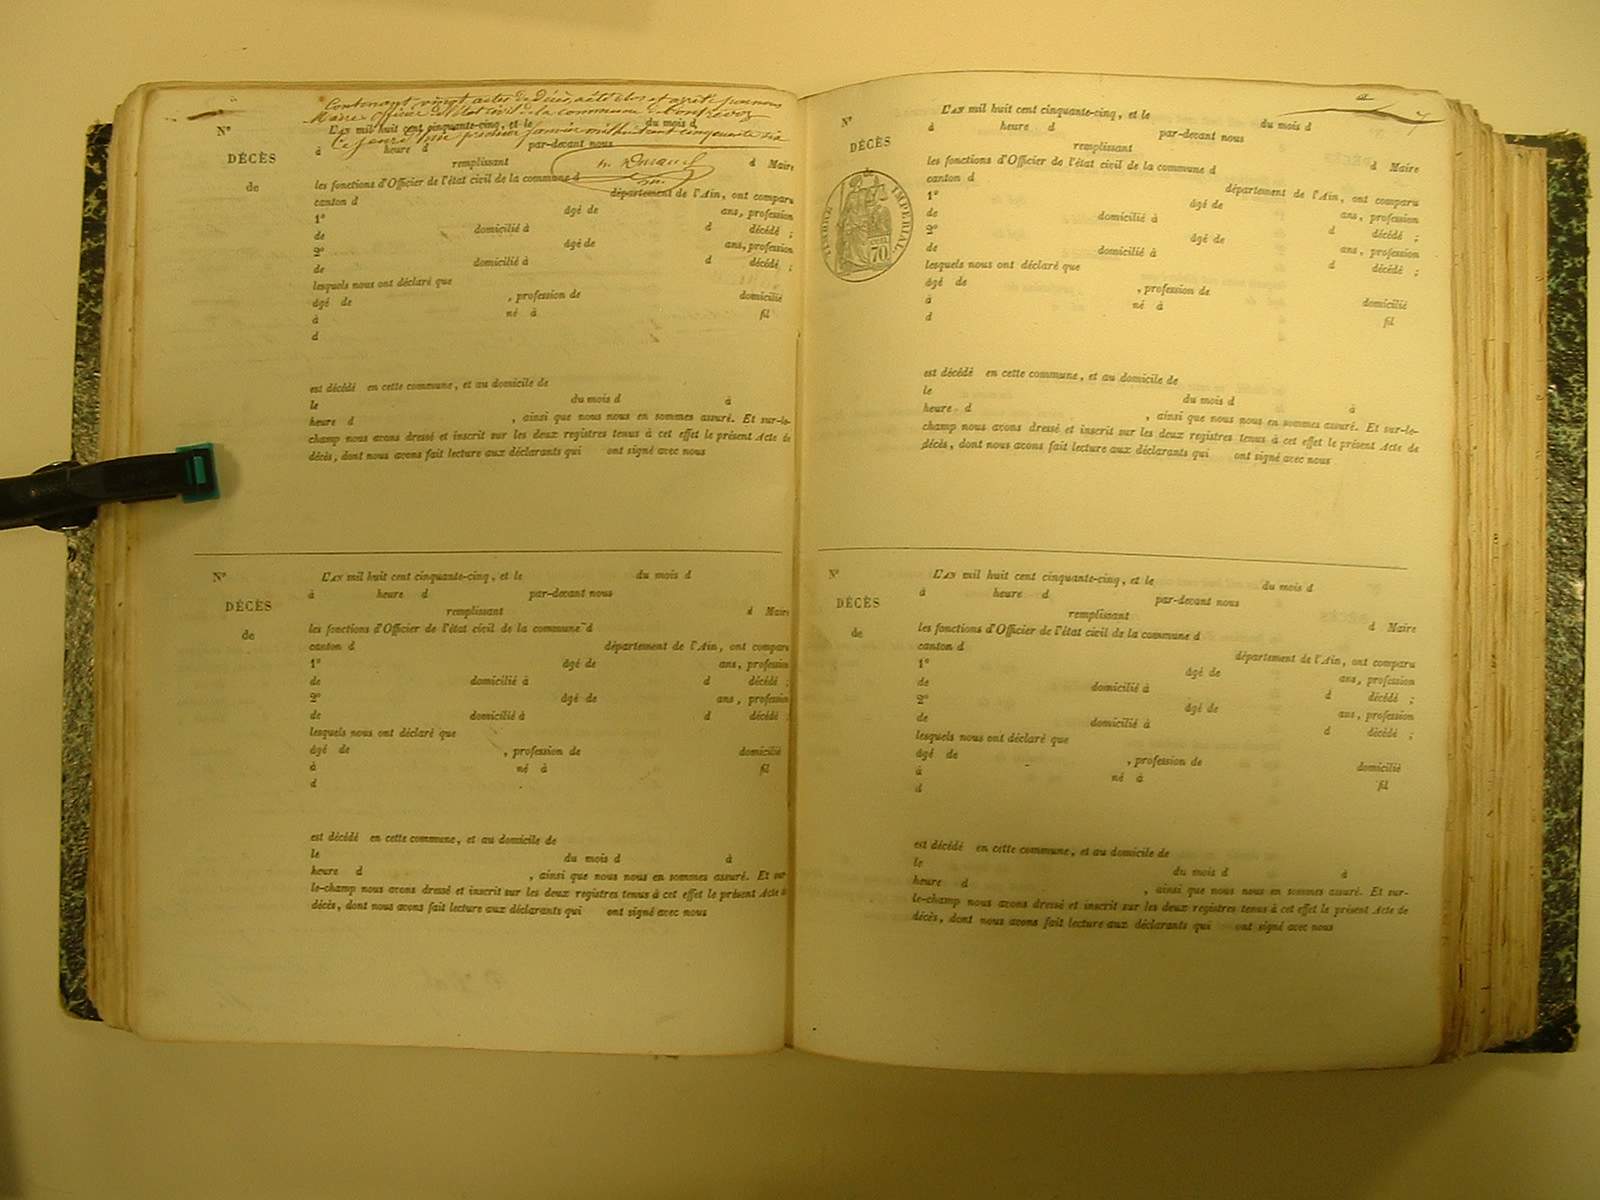 Contenant vingt actes de Décès, a été clos et arrêté par nous
Maire officier de l'état civil de la commune de Confrançon
Ce jourd'hui premier janvier mil huit cent cinquante six
N°
DÉCÈS
de
L'AN mil huit cent cinquante-cinq, et le du mois d
à heure d par-devant nous
remplissant d Maire
les fonctions d'Officier de l'état civil de la commune d
canton d département de l'Ain, ont comparu
1° âgé de ans, profession
de domicilié à d décédé ;
2° âgé de ans, profession
de domicilié à d décédé ;
lesquels nous ont déclaré que
âgé de , profession de domicilié
à né à fil
d
est décédé en cette commune, et au domicile de
le du mois d à
heure d , ainsi que nous nous en sommes assuré. Et sur-le-
champ nous avons dressé et inscrit sur les deux registres tenus à cet effet le présent Acte de
décès, dont nous avons fait lecture aux déclarants qui ont signé avec nous
N°
DÉCÈS
de
L'AN mil huit cent cinquante-cinq, et le du mois d
à heure d par-devant nous
remplissant d Maire
les fonctions d'Officier de l'état civil de la commune d
canton d département de l'Ain, ont comparu
1° âgé de ans, profession
de domicilié à d décédé ;
2° âgé de ans, profession
de domicilié à d décédé ;
lesquels nous ont déclaré que
âgé de , profession de domicilié
à né à fil
d
est décédé en cette commune, et au domicile de
le du mois d à
heure d , ainsi que nous nous en sommes assuré. Et sur-
le-champ nous avons dressé et inscrit sur les deux registres tenus à cet effet le présent Acte de
décès, dont nous avons fait lecture aux déclarants qui ont signé avec nous
7
N°
DÉCÈS
de
TIMBRE IMPÉRIAL
70
L'AN mil huit cent cinquante-cinq, et le du mois d
à heure d par-devant nous
remplissant d Maire
les fonctions d'Officier de l'état civil de la commune d
canton d département de l'Ain, ont comparu
1° âgé de ans, profession
de domicilié à d décédé ;
2° âgé de ans, profession
de domicilié à d décédé ;
lesquels nous ont déclaré que
âgé de , profession de domicilié
à né à fil
d
est décédé en cette commune, et au domicile de
le du mois d à
heure d , ainsi que nous nous en sommes assuré. Et sur-le-
champ nous avons dressé et inscrit sur les deux registres tenus à cet effet le présent Acte de
décès, dont nous avons fait lecture aux déclarants qui ont signé avec nous
N°
DÉCÈS
de
L'AN mil huit cent cinquante-cinq, et le du mois d
à heure d par-devant nous
remplissant d Maire
les fonctions d'Officier de l'état civil de la commune d
canton d département de l'Ain, ont comparu
1° âgé de ans, profession
de domicilié à d décédé ;
2° âgé de ans, profession
de domicilié à d décédé ;
lesquels nous ont déclaré que
âgé de , profession de domicilié
à né à fil
d
est décédé en cette commune, et au domicile de
le du mois d à
heure d , ainsi que nous nous en sommes assuré. Et sur-
le-champ nous avons dressé et inscrit sur les deux registres tenus à cet effet le présent Acte de
décès, dont nous avons fait lecture aux déclarants qui ont signé avec nous